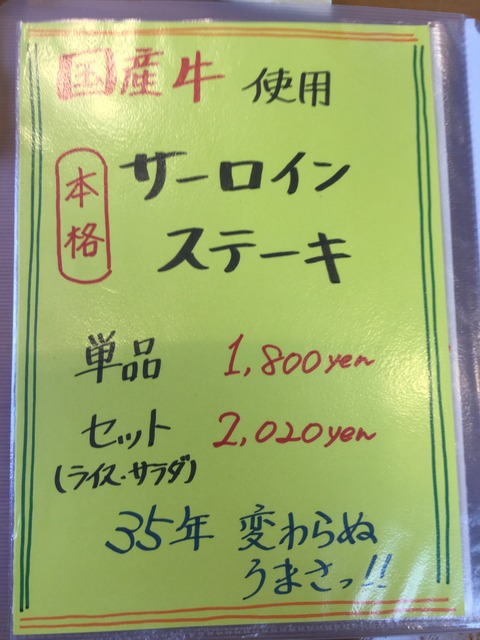 国産牛 使用
本格
サーロイン
ステーキ
単品 1,800yen
セット 2,020yen
(ライス・サラダ)
35年 変わらぬ
うまさっ!!